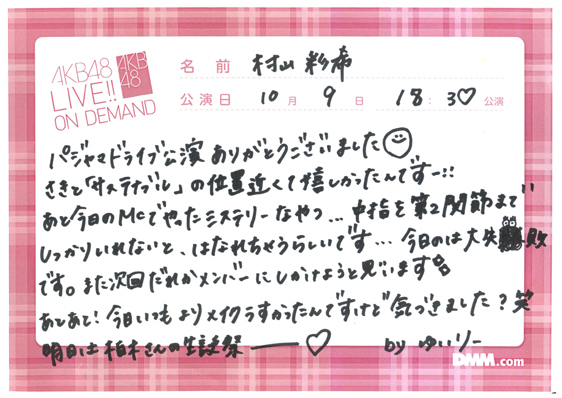 AKB48
LIVE!!
ON DEMAND
AKB
48
名 前 村山 彩希
公演日 10月 9日 18:30 公演
パジャマドライブ公演 ありがとうございました
さきと「サステナブル」の位置近くて嬉しかったんですー!!
あと今日のMCでやったミステリーなやつ... 中指を第2関節まで
しっかりいれないと、はなれちゃうらしいです... 今日のは大失敗
です。また次回だれかメンバーにしかけようと思います
あとあと! 今日いつもよりメイクうすかったんですけど気づきました?笑
明日は柏木さんの生誕祭ー♡ by ゆいりー
DMM.com